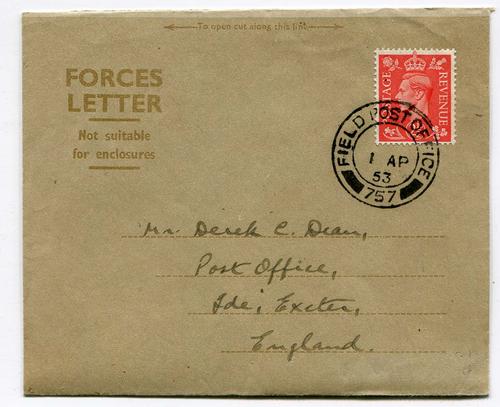 To open cut along this line
FORCES
LETTER
Not suitable
for enclosures
POSTAGE REVENUE
FIELD POST OFFICE
1 AP
53
757
Mr. Derek C. Dean,
Post Office,
Ide, Exeter,
England.